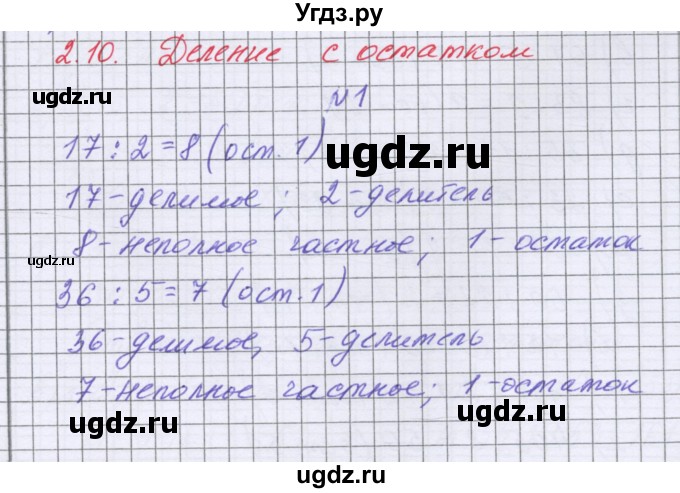 Угдз.ру
2.10. Деление с остатком
ugdz.ru
№1
ugdz.ru
17 : 2 = 8 (ост. 1)
ugdz.ru
17 - делимое; 2 - делитель
8 - неполное частное; 1 - остаток
ugdz.ru
36 : 5 = 7 (ост. 1)
36 - делимое, 5 - делитель
7 - неполное частное; 1 - остаток
ugdz.ru ugdz.ru
ugdz.ru